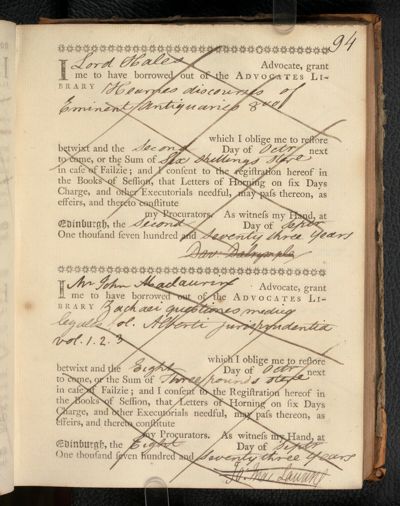 94
I Lord Hales Advocate, grant
me to have borrowed out of the ADVOCATES LI-
BRARY Hearnes discourses of
Eminent Antiquaries 8vo
which I oblige me to restore
betwixt and the Second Day of Octr next
to come, or the Sum of Six shillings sterl
in case of Failzie; and I consent to the registration hereof in
the Books of Session, that Letters of Horning on six Days
Charge, and other Executorials needful, may pass thereon, as
effeirs, and thereto constitute
my Procurators. As witness my Hand, at
Edinburgh, the Second Day of Septr
One thousand seven hundred and seventy three Years
Dav: Dalrymple
I Mr John Maclaurin Advocate, grant
me to have borrowed out of the ADVOCATES LI-
BRARY Zachaei questiones medicq
legales fol. Alberti jurisprudentia
vol. 1. 2. 3
which I oblige me to restore
betwixt and the Eight Day of Octr next
to come, or the Sum of Three pounds sterl
in case of Failzie; and I consent to the Registration hereof in
the Books of Session, that Letters of Horning on six Days
Charge, and other Executorials needful, may pass thereon, as
effeirs, and thereto constitute
my Procurators. As witness my Hand, at
Edinburgh, the Eight Day of Septr
One thousand seven hundred and seventy three Years
Jo. Mac Laurin